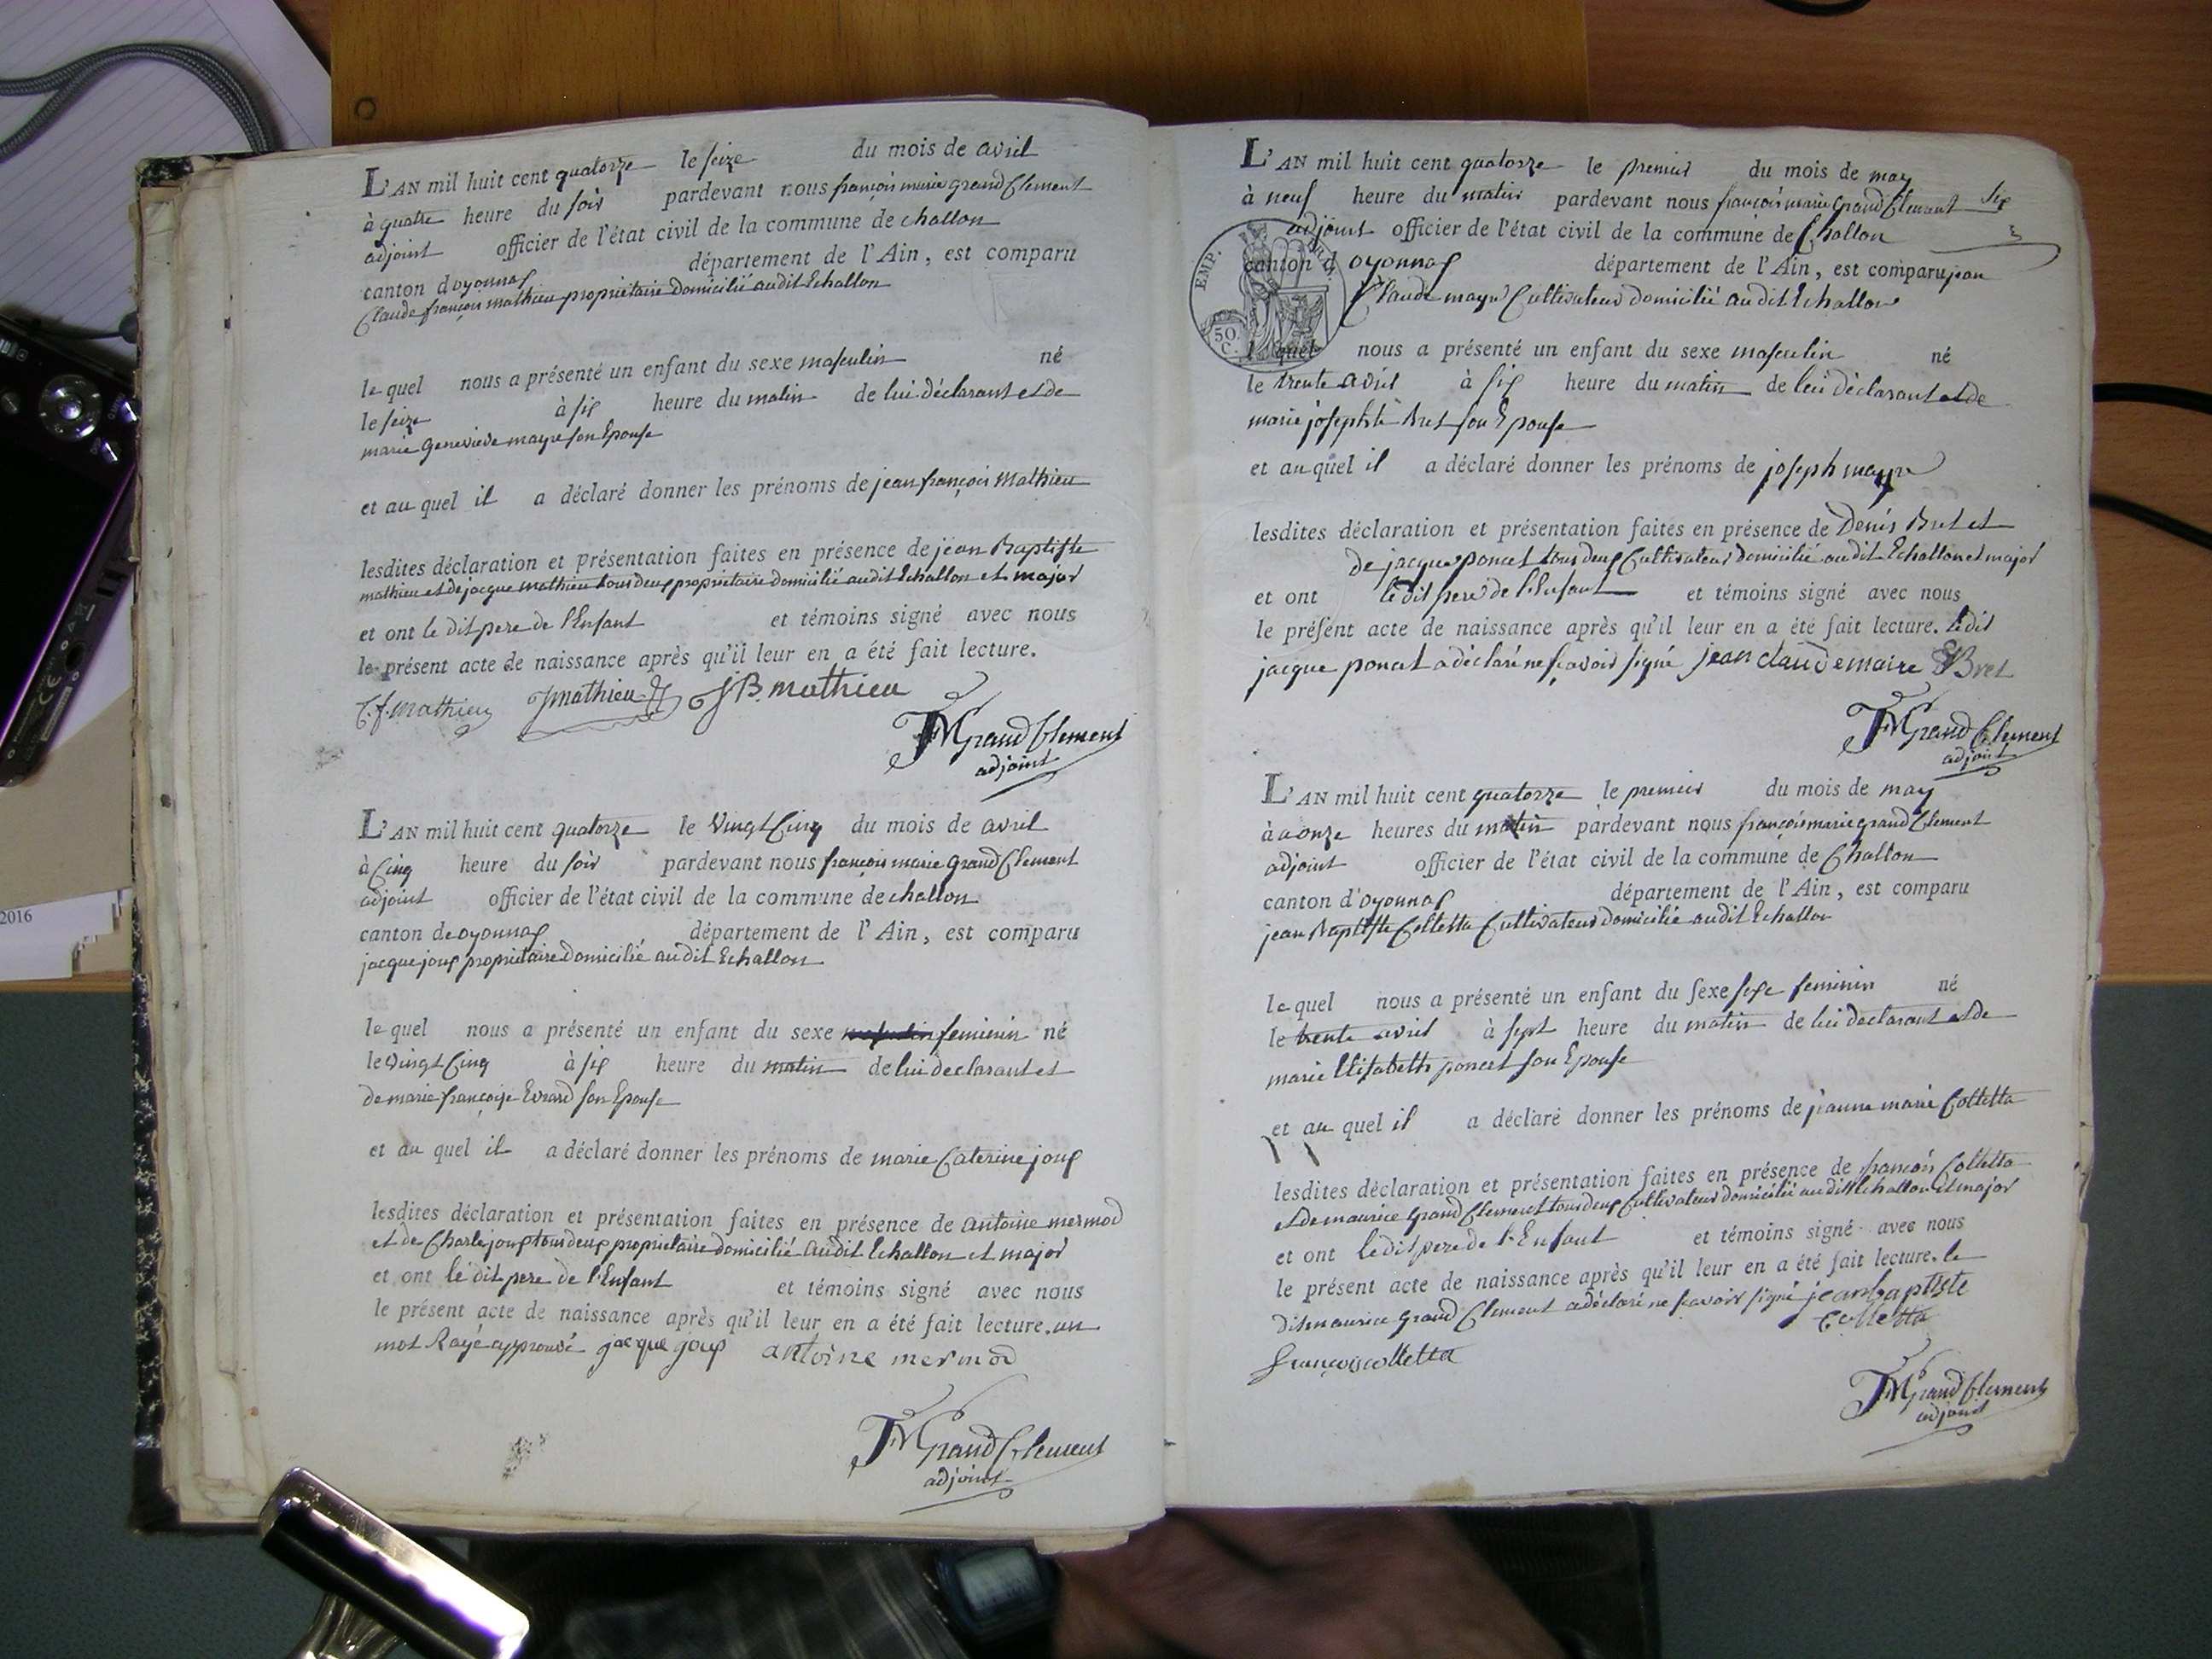 L'AN mil huit cent quatorze le seize du mois de avril
à quatre heure du soir pardevant nous françois marie grand Clement
adjoint officier de l'état civil de la commune de challon
canton d oyonnax département de l'Ain, est comparu
Claude françois mathieu propriétaire domicilié audit Echallon
le quel nous a présenté un enfant du sexe masculin né
le seize à six heure du matin de lui déclarant et de
marie Genevieve mayre son Epouse
et au quel il a déclaré donner les prénoms de jean françois Mathieu
lesdites déclaration et présentation faites en présence de jean Baptiste
mathieu et de jacque mathieu tous deux propriétaire domicilié audit Echallon et major
et ont le dit pere de l'Enfant et témoins signé avec nous
le présent acte de naissance après qu'il leur en a été fait lecture.
C. f. Mathieu Jmathieu JB. mathieu
FM Grand Clement
adjoint
L'AN mil huit cent quatorze le vingt Cinq du mois de avril
à Cinq heure du soir pardevant nous françois marie grand Clement
adjoint officier de l'état civil de la commune de challon
canton de oyonnax département de l'Ain, est comparu
jacque joux propriétaire domicilié audit Echallon
le quel nous a présenté un enfant du sexe masculin feminin né
le vingt Cinq à six heure du matin de lui declarant et
de marie françoise Evrard son Epouse
et au quel il a déclaré donner les prénoms de marie Caterine joux
lesdites déclaration et présentation faites en présence de antoine mermod
et de Charle joux tous deux propriétaire domicilié audit Echallon et major
et ont le dit pere de l'Enfant et témoins signé avec nous
le présent acte de naissance après qu'il leur en a été fait lecture. un
mot Rayé approuvé jacque joux antoine mermod
FM Grand Clement
adjoint
L'AN mil huit cent quatorze le premier du mois de may
à neuf heure du matin pardevant nous françois marie Grand Clement six
adjoint officier de l'état civil de la commune de Challon
canton d oyonnax département de l'Ain, est comparu jean
Claude mayre Cultivateur domicilié audit Echallon
EMP.
50.
C.
le quel nous a présenté un enfant du sexe masculin né
le trente avril à six heure du matin de lui déclarant et de
marie josephte Bret son Epouse
et au quel il a déclaré donner les prénoms de joseph mayre
lesdites déclaration et présentation faites en présence de Denis Bret et
de jacque poncet tous deux Cultivateur domicilié audit Echallon et major
et ont le dit pere de l'Enfant et témoins signé avec nous
le présent acte de naissance après qu'il leur en a été fait lecture. ledit
jacque poncet a déclaré ne scavoir signé jean claude maire Bret
FM Grand Clement
adjoint
L'AN mil huit cent quatorze le premier du mois de may
à onze heures du matin pardevant nous françois marie grand Clement
adjoint officier de l'état civil de la commune de Challon
canton d'oyonnax département de l'Ain, est comparu
jean Baptiste Colletta Cultivateur domicilié audit Echallon
le quel nous a présenté un enfant du sexe sexe feminin né
le trente avril à sept heure du matin de lui declarant et de
marie Elisabeth poncet son Epouse
et au quel il a déclaré donner les prénoms de jeanne marie Colletta
lesdites déclaration et présentation faites en présence de françois Colletta
et de maurice Grand Clement tous deux Cultivateur domicilié audit Echallon et major
et ont le dit pere de l'Enfant et témoins signé avec nous
le présent acte de naissance après qu'il leur en a été fait lecture. le
dit maurice Grand Clement a déclaré ne scavoir signé jeanbaptiste
Colletta
françois colletta
FM Grand Clement
adjoint
2016